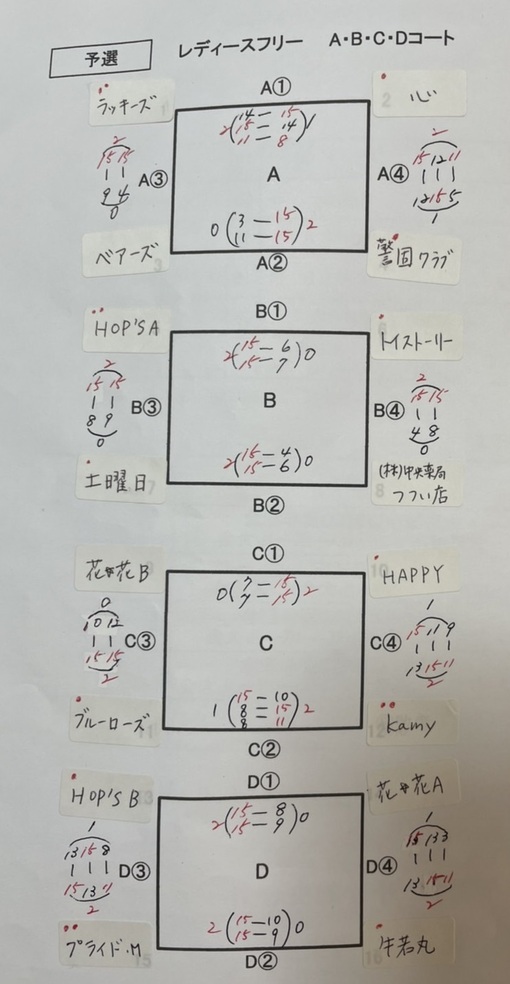 予選
レディースフリー A・B・C・Dコート
A①
ラッキーズ
心
2(14 — 15
15 — 14
11 — 8)1
2
15 15
9 4
0
A③
A
A④
2
15 12 11
12 15 5
1
0(3 — 15
11 — 15)2
ベアーズ
警固クラブ
A②
B①
HOP'S A
トイストーリー
2(15 — 6
15 — 7)0
2
15 15
8 9
0
B③
B
B④
2
15 15
4 8
0
2(15 — 4
15 — 6)0
土曜日
(株)中央薬局
つつい店
B②
C①
花*花B
HAPPY
0(7 — 15
7 — 15)2
0
10 12
15 15
2
C③
C
C④
1
15 11 9
13 15 11
2
1(15 — 10
8 — 15
8 — 11)2
ブルーローズ
kamy
C②
D①
HOP'S B
花*花A
2(15 — 8
15 — 9)0
1
13 15 8
15 13 11
2
D③
D
D④
1
15 13 3
13 15 11
2
2(15 — 10
15 — 9)0
プライド・M
牛若丸
D②